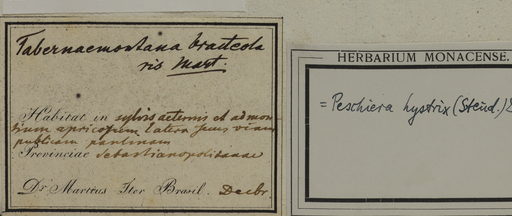 Tabernaemontana bracteola
ris Mart.
Habitat in sylvis aeternis et ad mon-
tium apricorum latera secus viam
publicam
Provinciae Sebastianopolitanae
Dr. Martius Iter Brasil. Decbr.
HERBARIUM MONACENSE.
= Peschiera hystrix (Steud.)